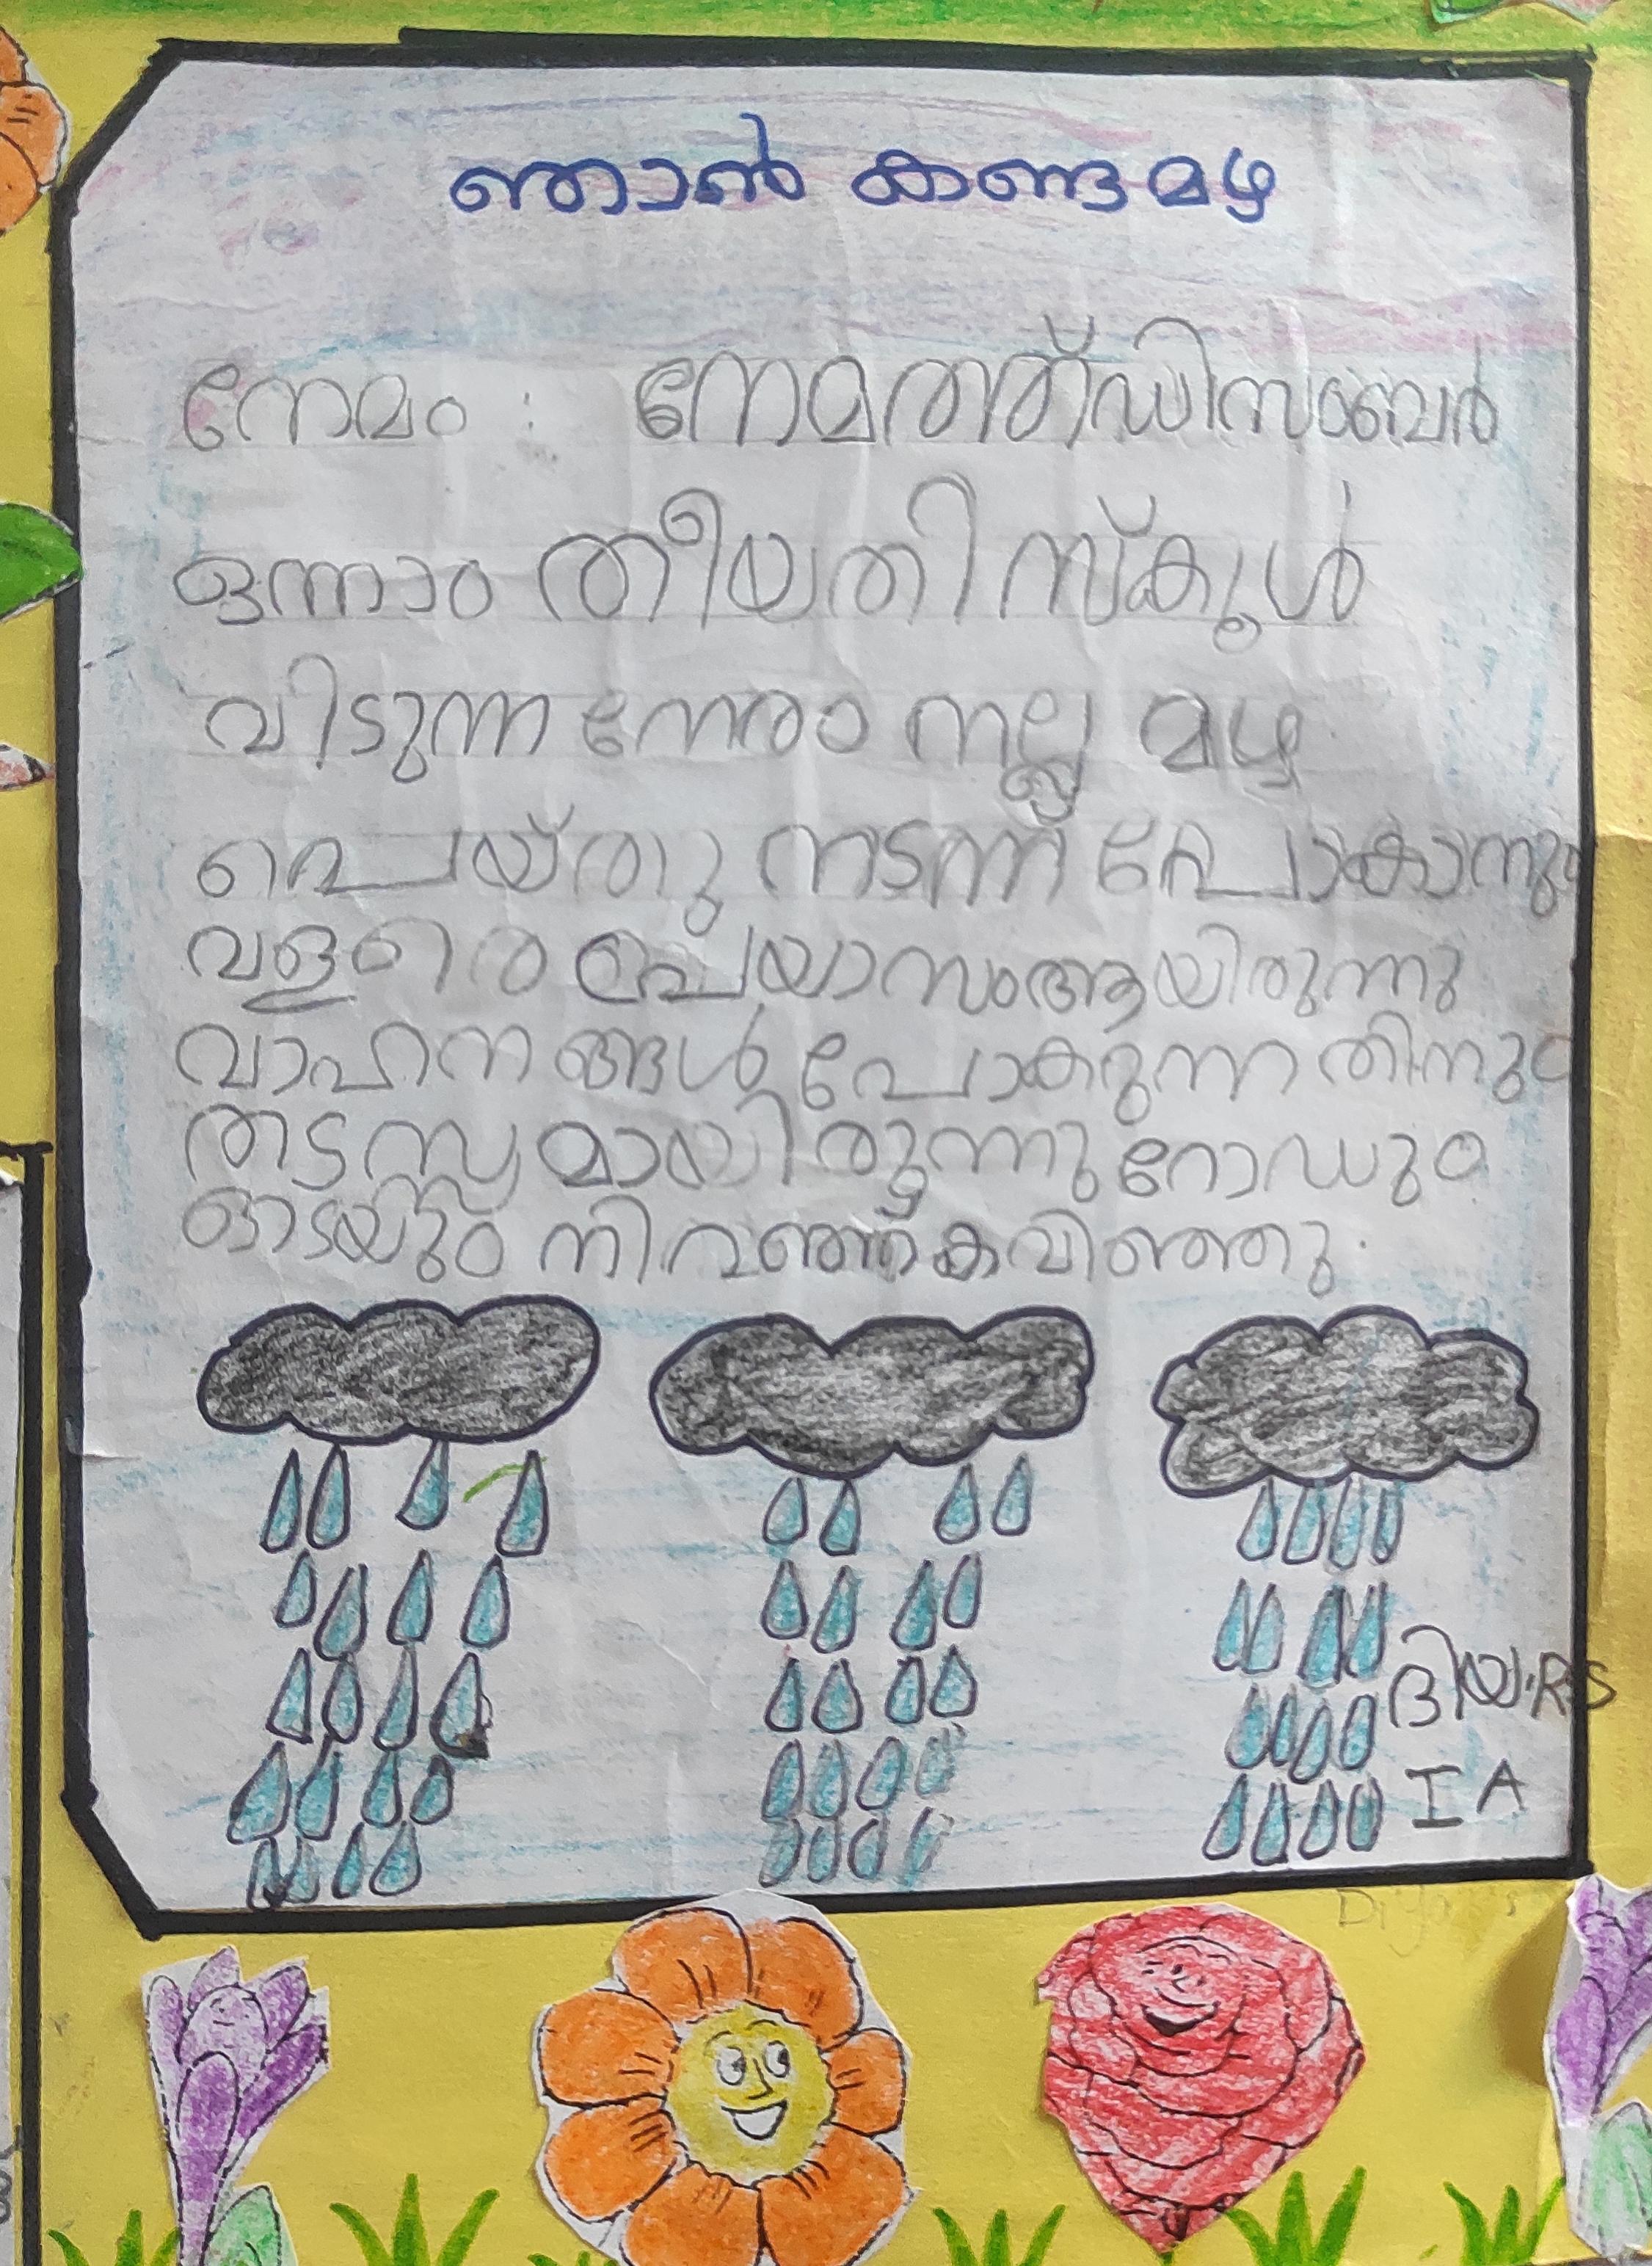 ഞാൻ കണ്ട മഴ
നേമം : നേമത്ത് ഡിസംബർ
ഒന്നാം തീയതി സ്കൂൾ
വിടുന്ന നേരം നല്ല മഴ
പെയ്തു നടന്ന് പോകാനും
വളരെ പ്രയാസംആയിരുന്നു
വാഹനങ്ങൾ പോകുന്നതിനും
തടസ്സമായിരുന്നു റോഡും
ഓടയും നിറഞ്ഞ് കവിഞ്ഞു.
ദിയ.R.S
I A
Diya R S